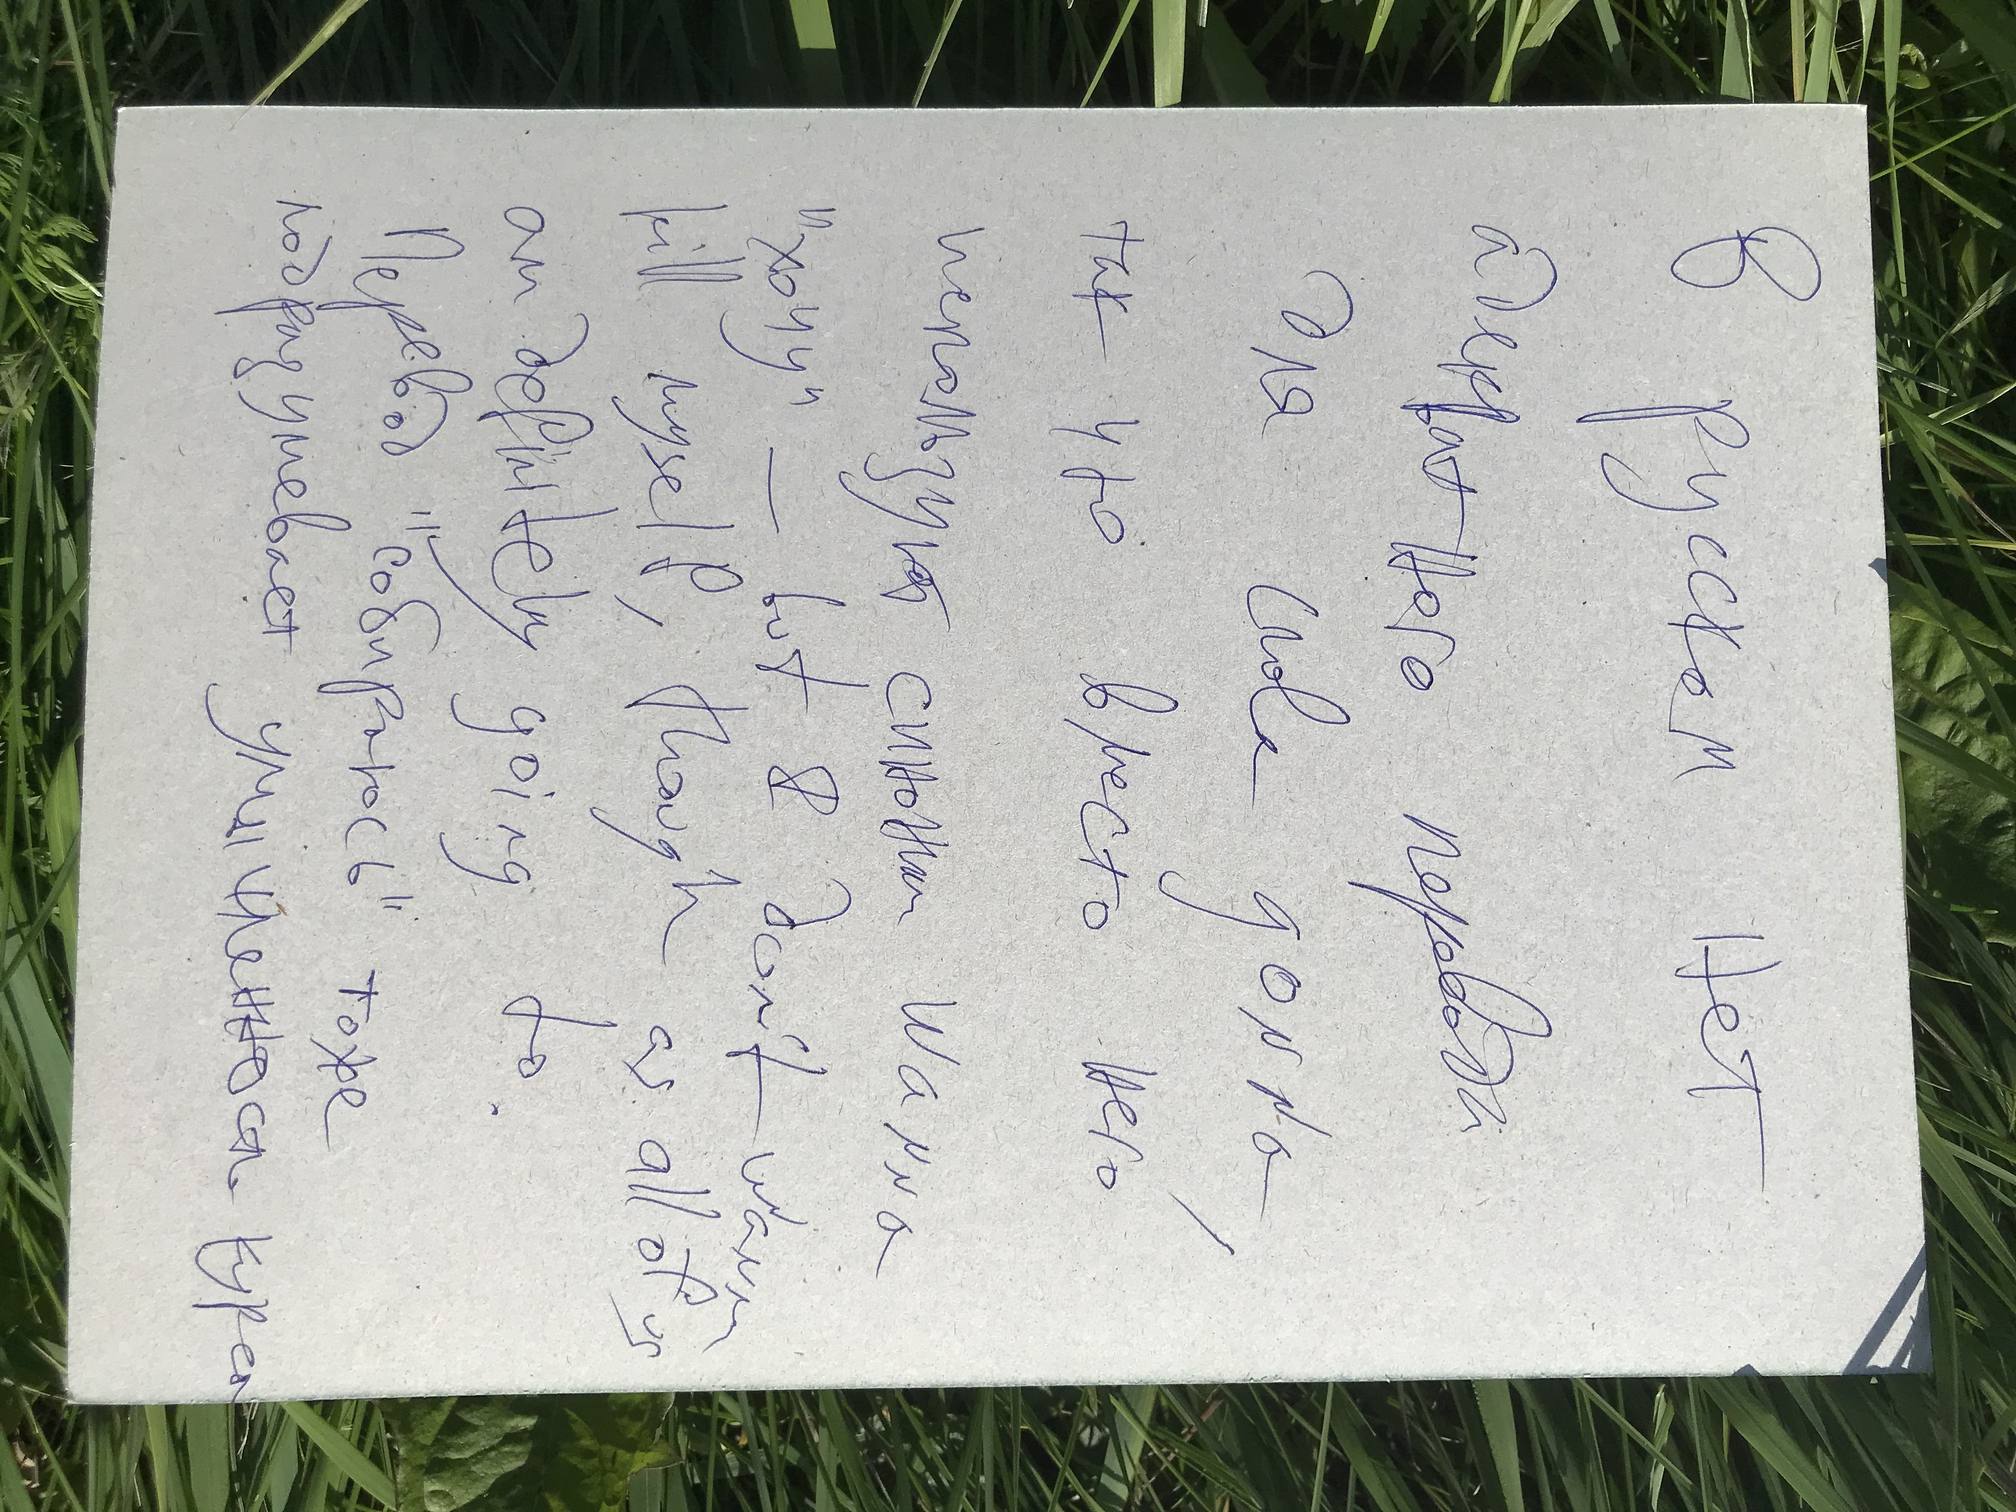 В русском нет
адекватного перевода
для слова gonna,
так что вместо него
используют синоним wanna
"хочу" — but I don't wanna
kill myself, though as all of us
am definitely going to.
Перевод "собираюсь" тоже
подразумевает умышленность